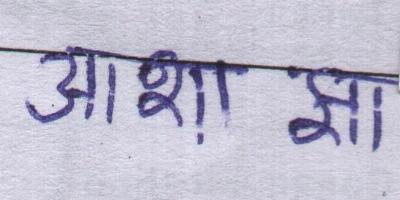 आशा झा